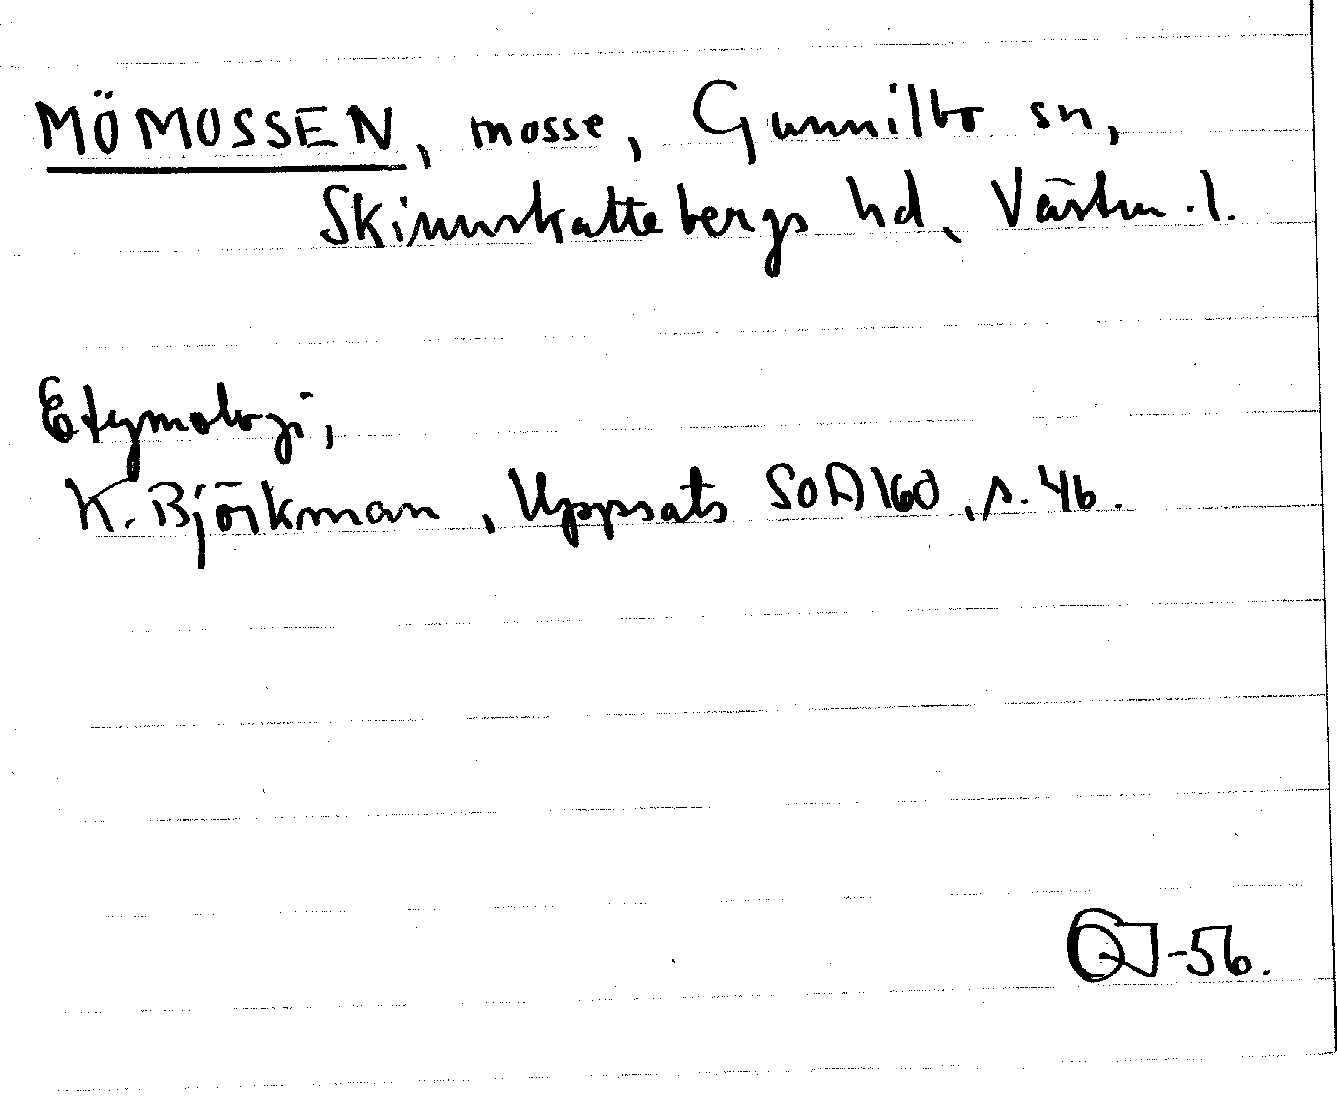 MÖMOSSEN, mosse, Gunnilbo sn,
Skinnskattebergs hd, Västm. l.
Etymologi,
K. Björkman, Uppsats SOA 160, s. 46.
-56.